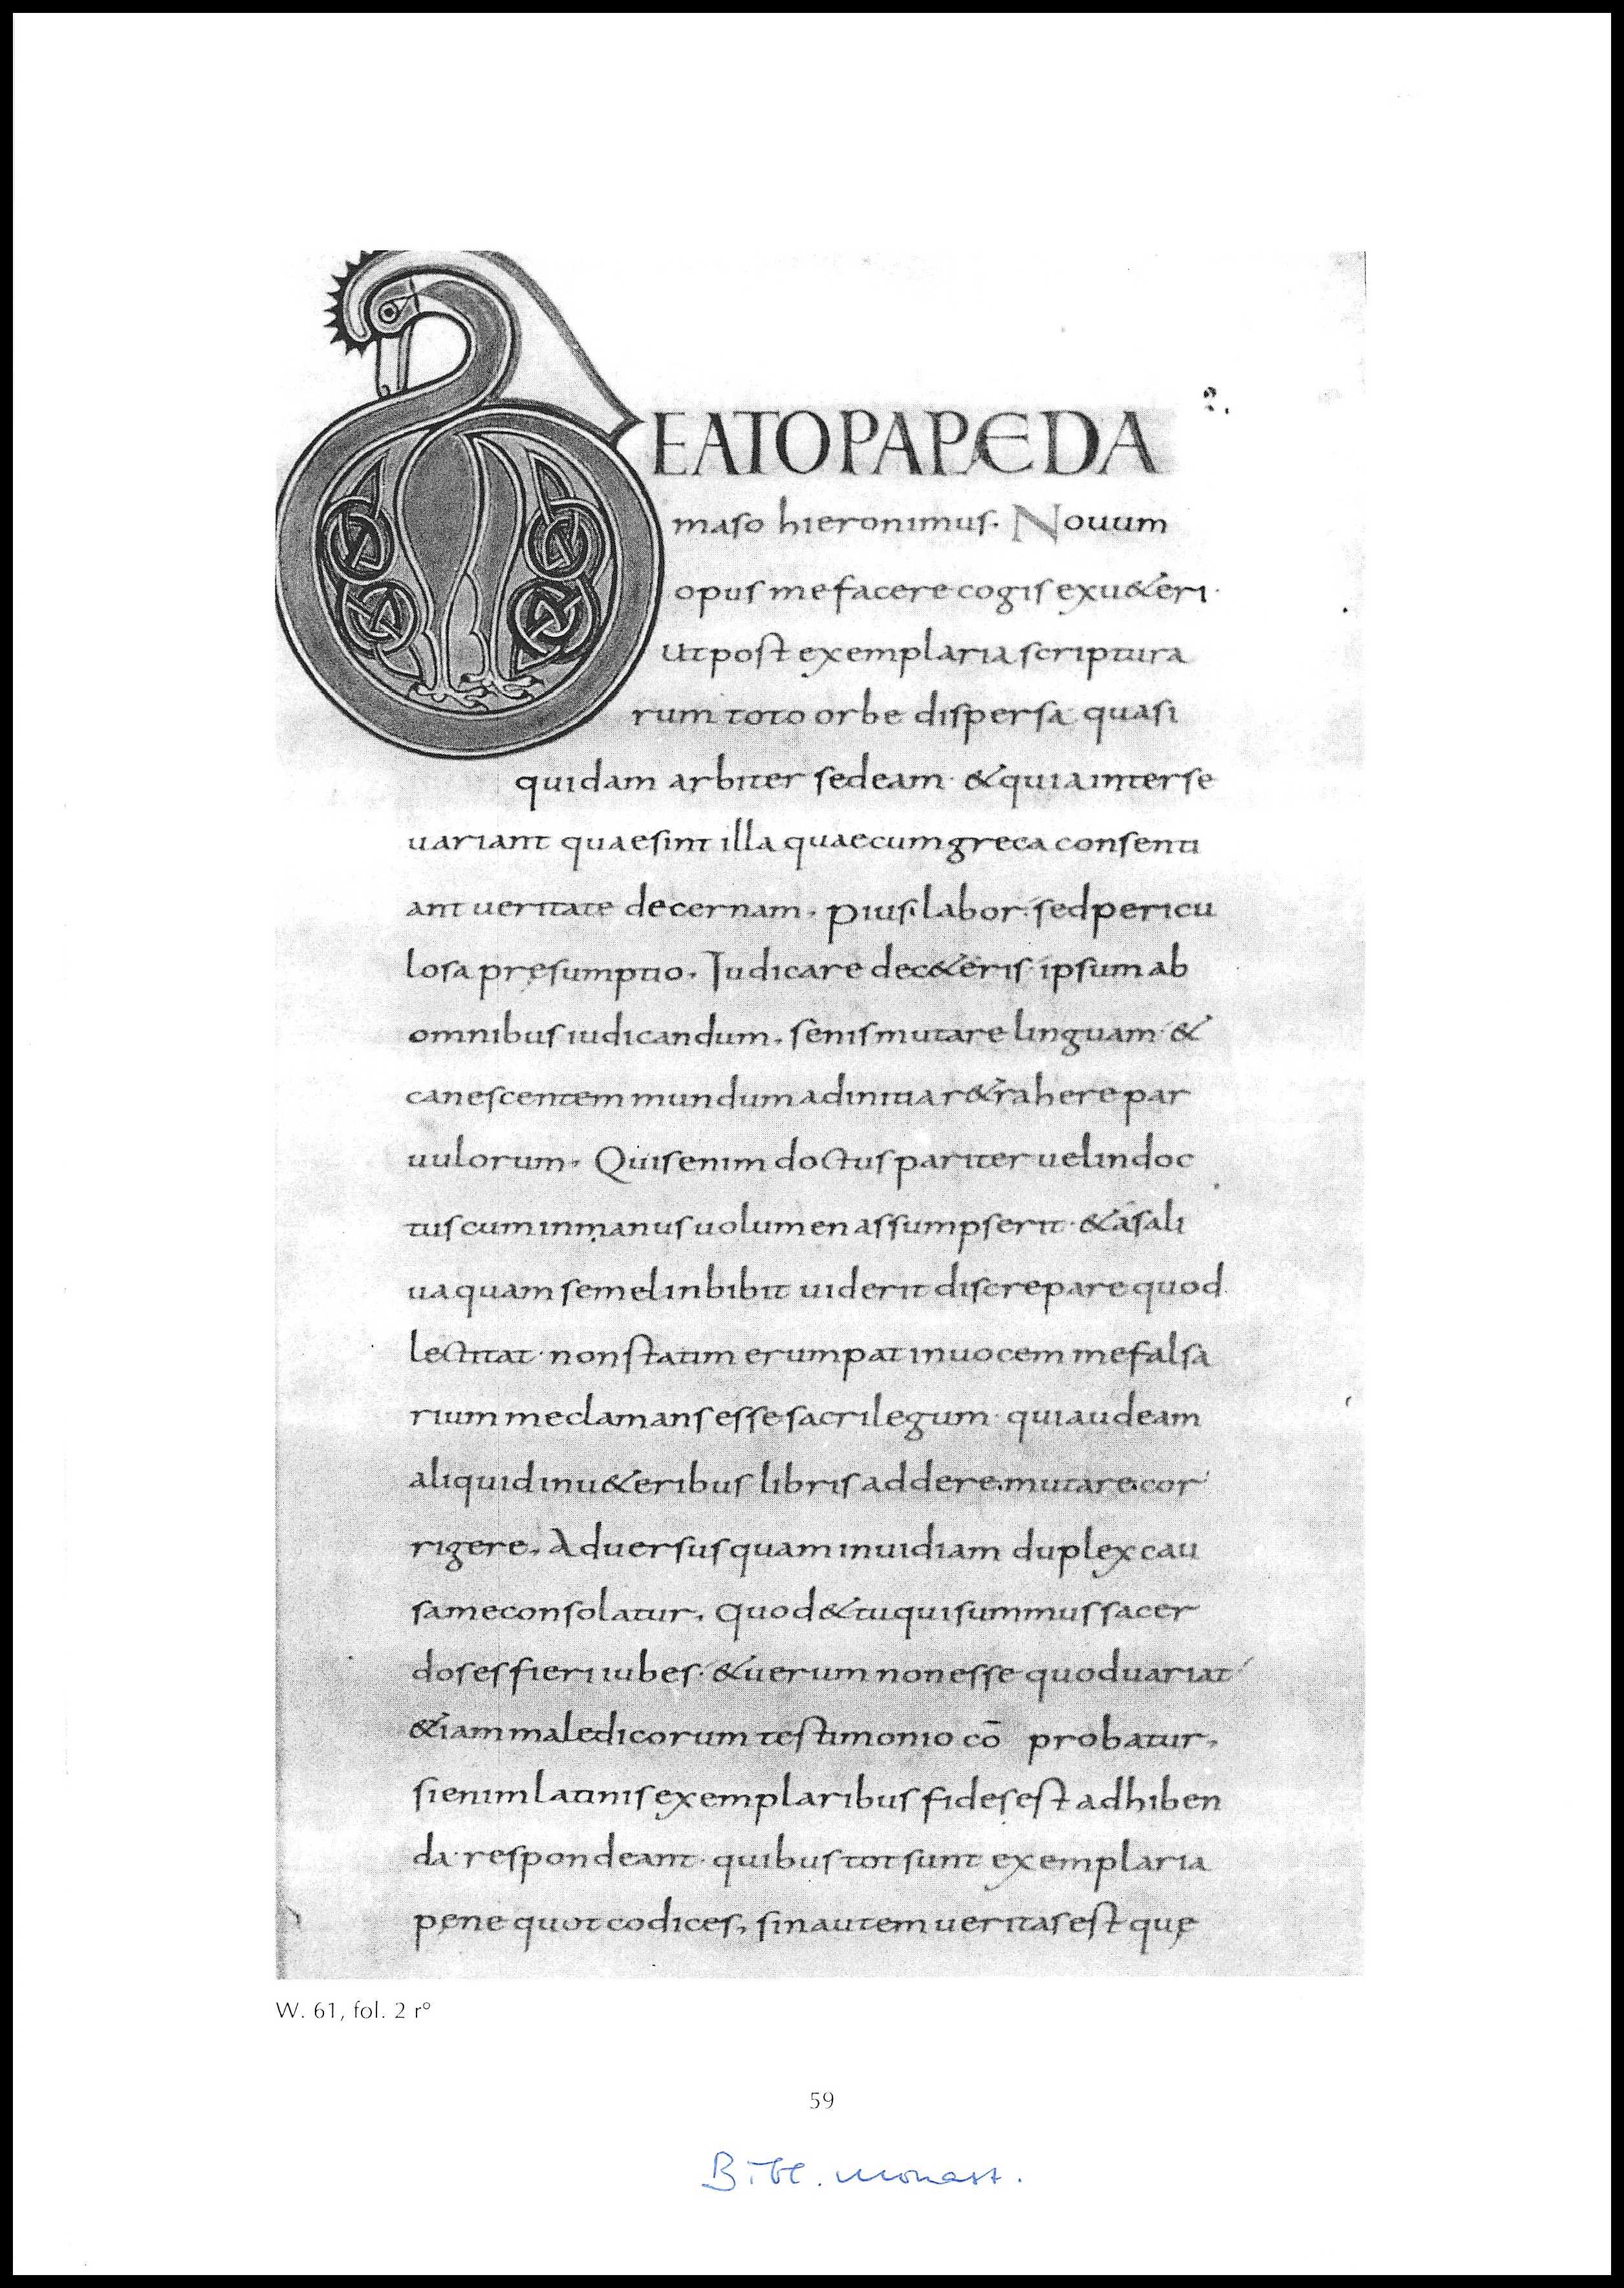 BEATO PAPAE DA
maso hieronimus. Novum
opus me facere cogis ex u&eri.
Ut post exemplaria scriptura
rum toto orbe dispersa quasi
quidam arbiter sedeam. & quia inter se
uariant quae sint illa quae cum greca consenti
ant ueritate decernam. pius labor. sed pericu
losa pręsumptio. Iudicare de c&eris. ipsum ab
omnibus iudicandum. senis mutare linguam. &
canescentem mundum ad initia r&rahere par
uulorum. Quis enim doctus pariter uel indoc
tus cum in manus uolumen assumpserit. & a sali
ua quam semel inbibit uiderit discrepare quod
lectitat. non statim erumpat in uocem me falsa
rium me clamans esse sacrilegum. qui audeam
aliquid in u&eribus libris addere. mutare. cor
rigere. Aduersus quam inuidiam duplex cau
sa me consolatur. quod & tu qui summus sacer
dos es fieri iubes. & uerum non esse quod uariat
&iam maledicorum testimonio cō probatur.
si enim latinis exemplaribus fides est adhiben
da. respondeant. quibus tot sunt exemplaria
pene quot codices, sin autem ueritas est quę
W. 61, fol. 2 r°
59
Bibl. monast.